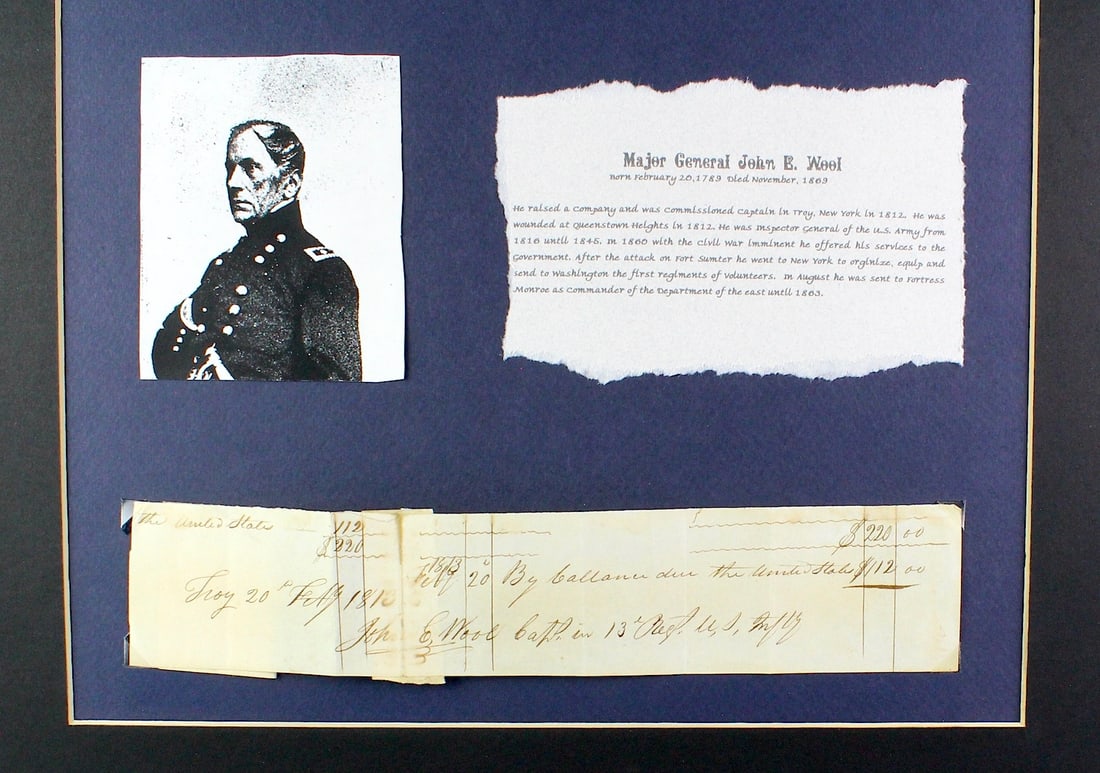 Major General John E. Wool
Born February 20, 1789 Died November, 1869
He raised a company and was commissioned Captain in Troy, New York in 1812. He was
wounded at Queenstown Heights in 1812. He was Inspector General of the U.S. Army from
1816 until 1846. In 1860 with the Civil War imminent he offered his services to the
Government. After the attack on Fort Sumter he went to New York to orginize, equip and
send to Washington the first regiments of volunteers. In August he was sent to Fortress
Monroe as Commander of the Department of the east until 1863.
the United States 112
$220
$220 00
1813
Feby 20 By Ballance due the United States $112 00
Troy 20th Feby 1813
John E. Wool Capt. in 13th Regt. U.S. Infty